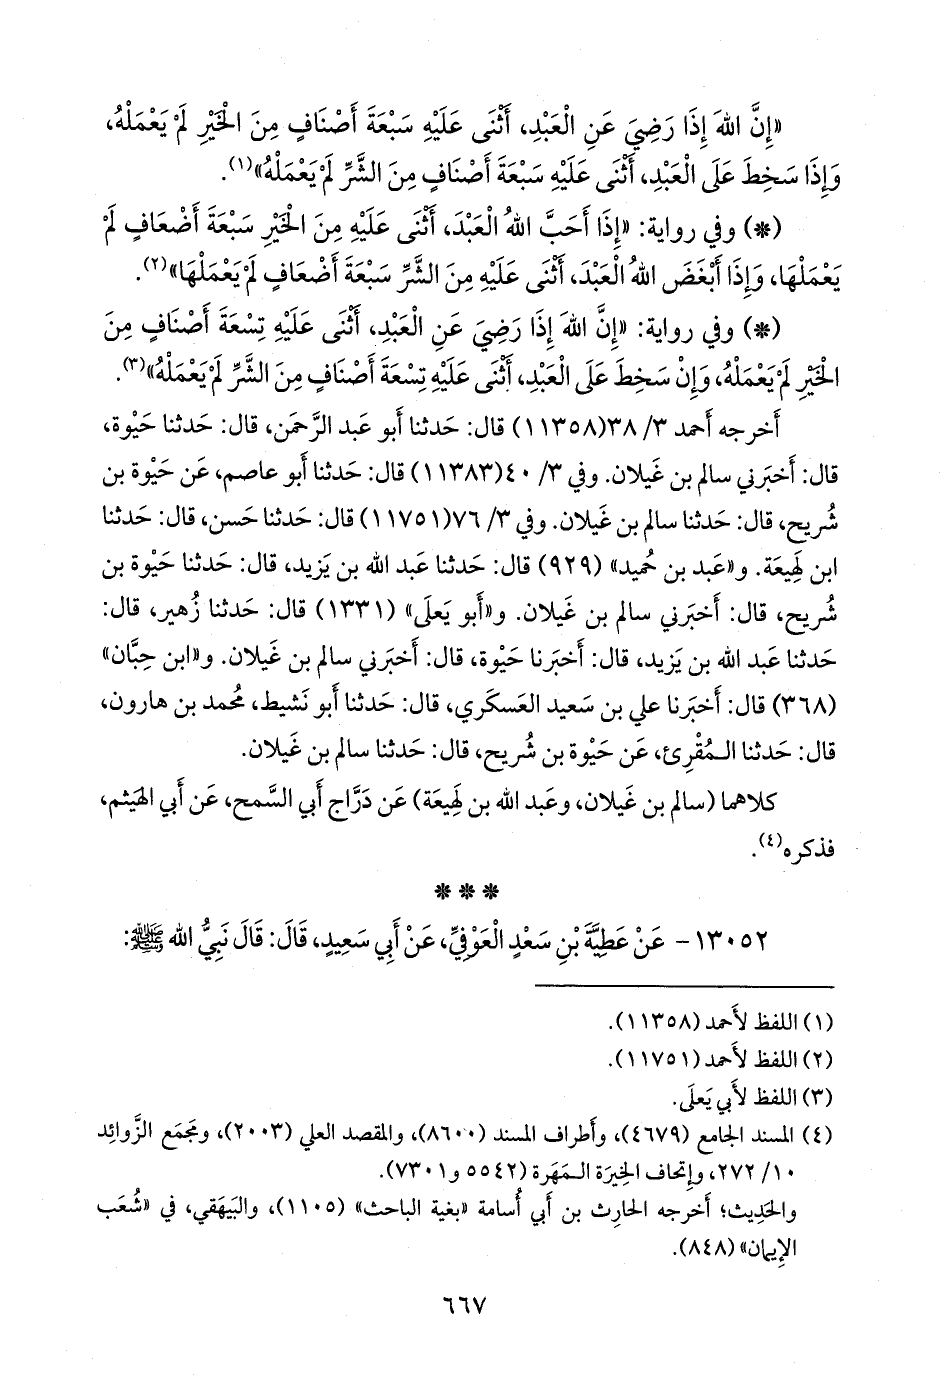 «إِنَّ اللهَ إِذَا رَضِيَ عَنِ الْعَبْدِ، أَثْنَى عَلَيْهِ سَبْعَةَ أَصْنَافٍ مِنَ الْخَيْرِ لَمْ يَعْمَلْهُ،
وَإِذَا سَخِطَ عَلَى الْعَبْدِ، أَثْنَى عَلَيْهِ سَبْعَةَ أَصْنَافٍ مِنَ الشَّرِّ لَمْ يَعْمَلْهُ»(١).
(*) وفي رواية: «إِذَا أَحَبَّ اللهُ الْعَبْدَ، أَثْنَى عَلَيْهِ مِنَ الْخَيْرِ سَبْعَةَ أَضْعَافٍ لَمْ
يَعْمَلْهَا، وَإِذَا أَبْغَضَ اللهُ الْعَبْدَ، أَثْنَى عَلَيْهِ مِنَ الشَّرِّ سَبْعَةَ أَضْعَافٍ لَمْ يَعْمَلْهَا»(٢).
(*) وفي رواية: «إِنَّ اللهَ إِذَا رَضِيَ عَنِ الْعَبْدِ، أَثْنَى عَلَيْهِ تِسْعَةَ أَصْنَافٍ مِنَ
الْخَيْرِ لَمْ يَعْمَلْهُ، وَإِنْ سَخِطَ عَلَى الْعَبْدِ، أَثْنَى عَلَيْهِ تِسْعَةَ أَصْنَافٍ مِنَ الشَّرِّ لَمْ يَعْمَلْهُ»(٣).
أَخرجه أَحمد ٣/ ٣٨(١١٣٥٨) قال: حَدثنا أَبو عَبد الرَّحمَن، قال: حَدثنا حَيْوة،
قال: أَخبَرني سالم بن غَيلان. وفي ٣/ ٤٠(١١٣٨٣) قال: حَدثنا أَبو عاصم، عَن حَيْوة بن
شُريح، قال: حَدثنا سالم بن غَيلان. وفي ٣/ ٧٦(١١٧٥١) قال: حَدثنا حَسن، قال: حَدثنا
ابن لَهِيعَة. و«عَبد بن حُميد» (٩٢٩) قال: حَدثنا عَبد الله بن يَزيد، قال: حَدثنا حَيْوة بن
شُريح، قال: أَخبَرني سالم بن غَيلان. و«أَبو يَعلَى» (١٣٣١) قال: حَدثنا زُهير، قال:
حَدثنا عَبد الله بن يَزيد، قال: أَخبَرنا حَيْوة، قال: أَخبَرني سالم بن غَيلان. و«ابن حِبَّان»
(٣٦٨) قال: أَخبَرنا علي بن سَعيد العَسكَري، قال: حَدثنا أَبو نَشيط، مُحمد بن هارون،
قال: حَدثنا المُقْرِئ، عَن حَيْوة بن شُريح، قال: حَدثنا سالم بن غَيلان.
كلاهما (سالم بن غَيلان، وعَبد الله بن لَهِيعَة) عَن دَرَّاج أَبي السَّمح، عَن أَبي الهَيثم،
فذكره(٤).
* * *
١٣٠٥٢- عَنْ عَطِيَّةَ بْنِ سَعْدٍ الْعَوْفِيِّ، عَنْ أَبِي سَعِيدٍ، قَالَ: قَالَ نَبِيُّ الله ﷺ:
(١) اللفظ لأَحمد (١١٣٥٨).
(٢) اللفظ لأَحمد (١١٧٥١).
(٣) اللفظ لأَبي يَعلَى.
(٤) المسند الجامع (٤٦٧٩)، وأَطراف المسند (٨٦٠٠)، والمقصد العلي (٢٠٠٣)، ومَجمَع الزَّوائِد
١٠/ ٢٧٢، وإِتحاف الخِيرَة المَهَرة (٥٥٤٢ و٧٣٠١).
والحَدِيث؛ أَخرجه الحارِث بن أَبي أُسامة «بغية الباحث» (١١٠٥)، والبَيهَقي، في «شُعَب
الإِيمان» (٨٤٨).
٦٦٧